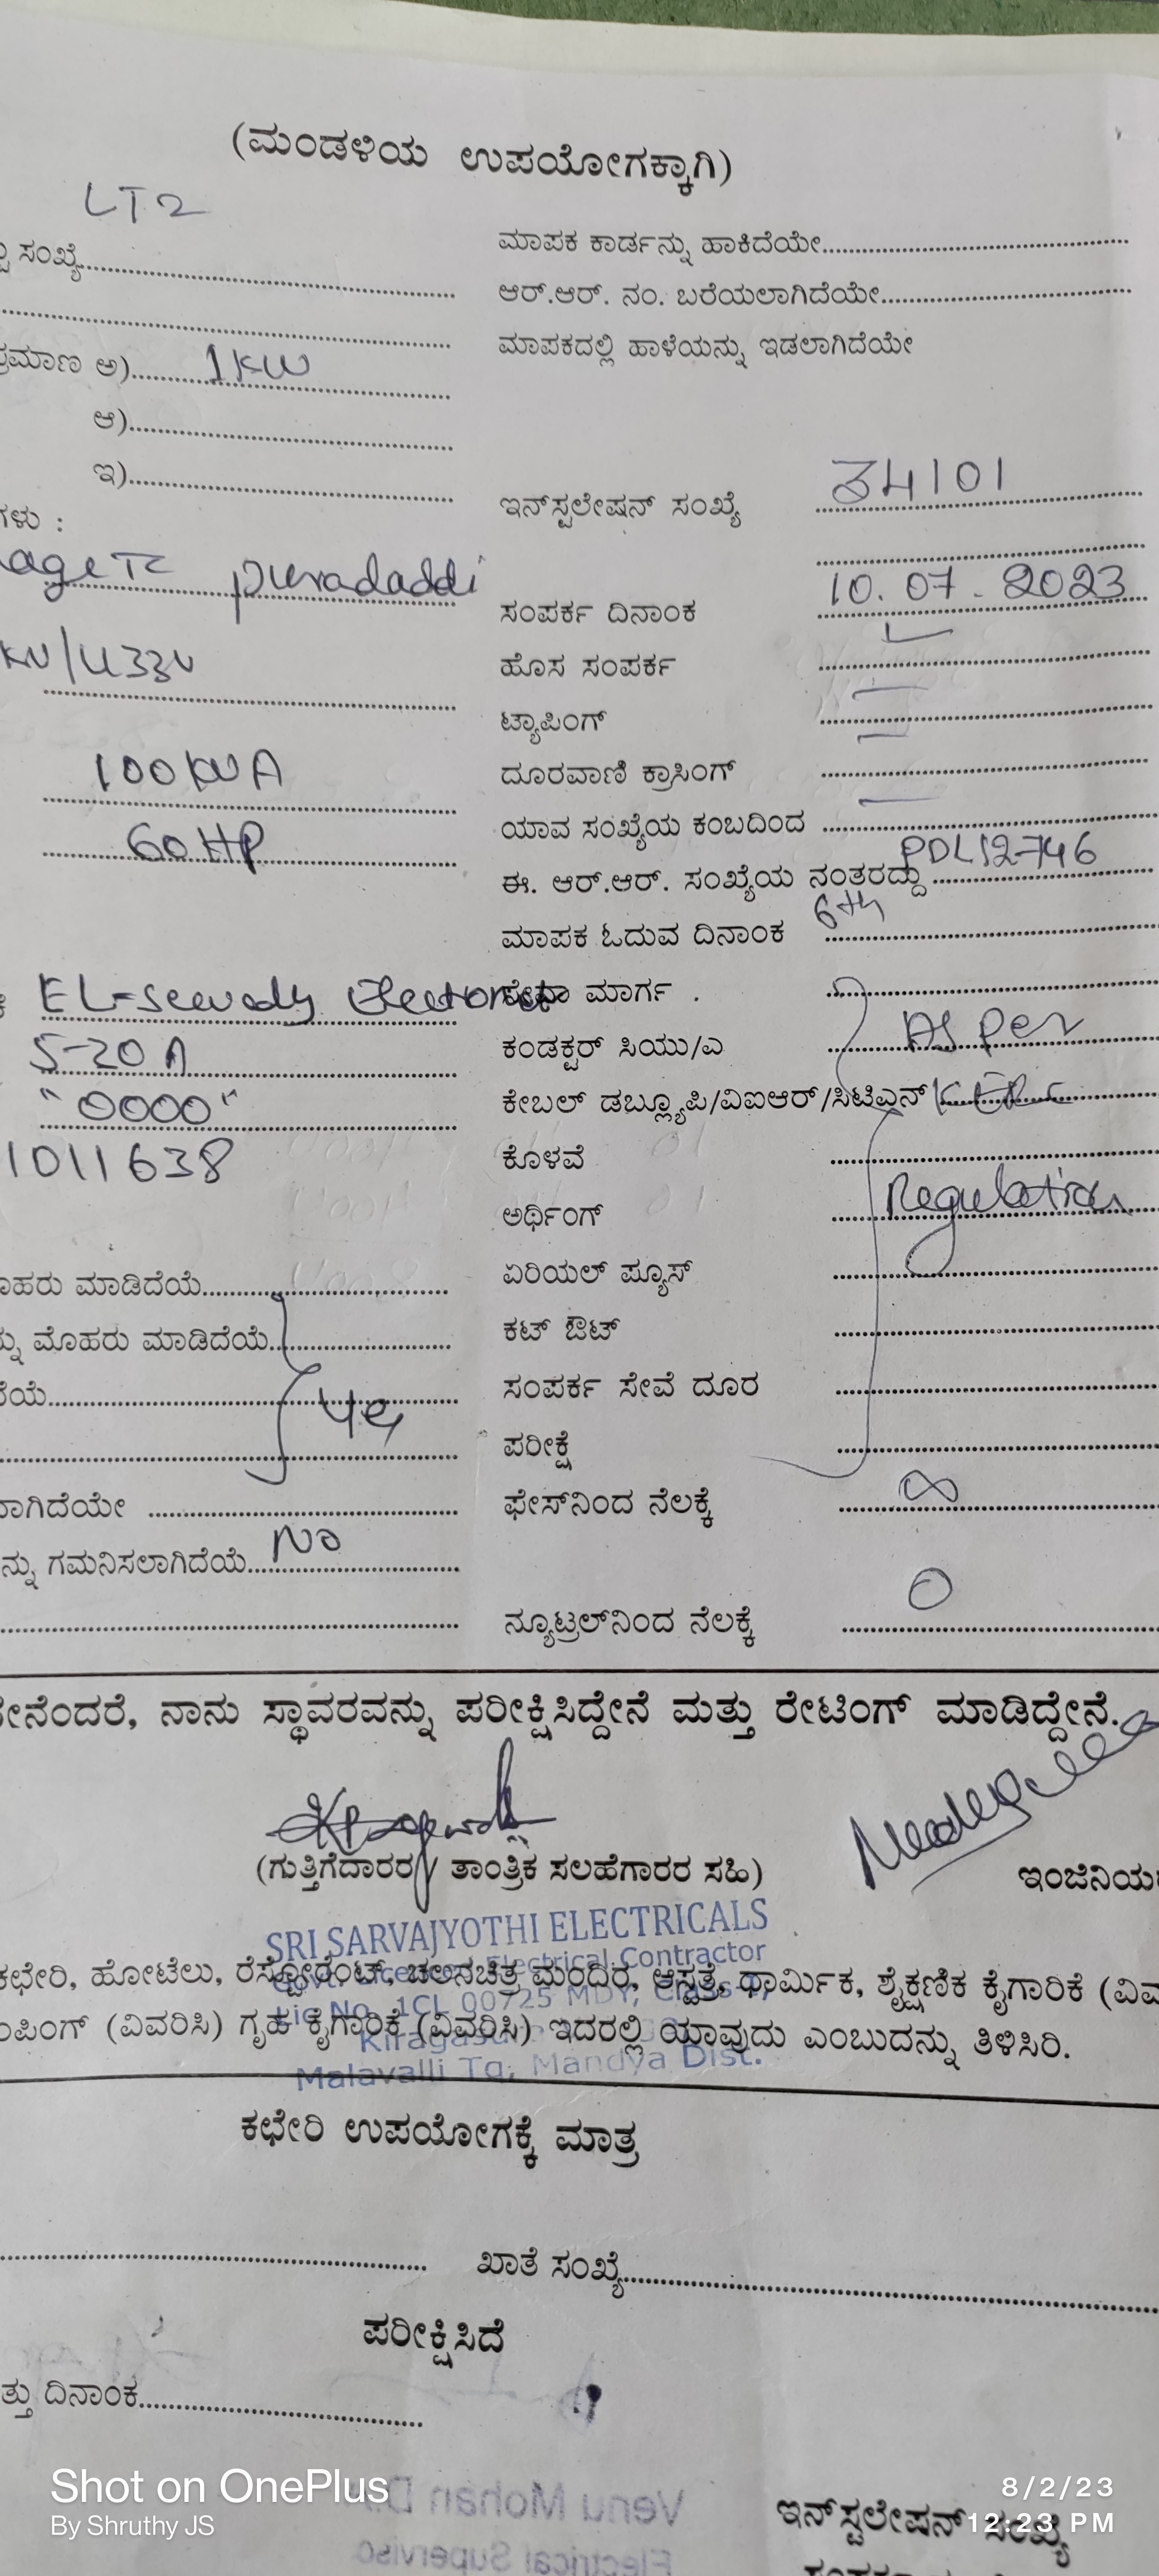 (ಮಂಡಳಿಯ ಉಪಯೋಗಕ್ಕಾಗಿ)
LT2
ಸಂಖ್ಯೆ
ಮಾಪಕ ಕಾರ್ಡನ್ನು ಹಾಕಿದೆಯೇ
ಆರ್.ಆರ್. ನಂ. ಬರೆಯಲಾಗಿದೆಯೇ
ಮಾಪಕದಲ್ಲಿ ಹಾಳೆಯನ್ನು ಇಡಲಾಗಿದೆಯೇ
ಅ) 1KW
ಆ)
ಇ)
ಇನ್‌ಸ್ಟಲೇಷನ್ ಸಂಖ್ಯೆ 34101
ಗಳು :
ಸಂಪರ್ಕ ದಿನಾಂಕ 10.07.2023
ಹೊಸ ಸಂಪರ್ಕ
ಟ್ಯಾಪಿಂಗ್
100 KVA
ದೂರವಾಣಿ ಕ್ರಾಸಿಂಗ್
60 HP
ಯಾವ ಸಂಖ್ಯೆಯ ಕಂಬದಿಂದ
ಈ. ಆರ್.ಆರ್. ಸಂಖ್ಯೆಯ ನಂತರದ್ದು PDL12746
ಮಾಪಕ ಓದುವ ದಿನಾಂಕ 6th
EL-sewedy
ಮಾರ್ಗ .
5-20 A
ಕಂಡಕ್ಟರ್ ಸಿಯು/ಎ As per
"0000"
ಕೇಬಲ್ ಡಬ್ಲ್ಯೂಪಿ/ವಿಐಆರ್/ಸಿಟಿಎನ್ KERC
1011638
ಕೊಳವೆ
ಅರ್ಥಿಂಗ್ Regulation
ಮಾಡಿದೆಯೆ
ಏರಿಯಲ್ ಪ್ಯೂಸ್
ಮೊಹರು ಮಾಡಿದೆಯೆ
ಕಟ್ ಔಟ್
ಸಂಪರ್ಕ ಸೇವೆ ದೂರ
ಪರೀಕ್ಷೆ
ಫೇಸ್‌ನಿಂದ ನೆಲಕ್ಕೆ ∞
ಗಮನಿಸಲಾಗಿದೆಯೆ No
ನ್ಯೂಟ್ರಲ್‌ನಿಂದ ನೆಲಕ್ಕೆ 0
ನಾನು ಸ್ಥಾವರವನ್ನು ಪರೀಕ್ಷಿಸಿದ್ದೇನೆ ಮತ್ತು ರೇಟಿಂಗ್ ಮಾಡಿದ್ದೇನೆ.
(ಗುತ್ತಿಗೆದಾರರ / ತಾಂತ್ರಿಕ ಸಲಹೆಗಾರರ ಸಹಿ)
SRI SARVAJYOTHI ELECTRICALS
Electrical Contractor
ಕಛೇರಿ, ಹೋಟೆಲು, ರೆಸ್ಟೋರೆಂಟ್, ಚಲನಚಿತ್ರ ಮಂದಿರ, ಆಸ್ಪತ್ರೆ, ಧಾರ್ಮಿಕ, ಶೈಕ್ಷಣಿಕ ಕೈಗಾರಿಕೆ
Lic No. 1CL 00725 MDY,
(ವಿವರಿಸಿ) ಗೃಹ ಕೈಗಾರಿಕೆ (ವಿವರಿಸಿ) ಇದರಲ್ಲಿ ಯಾವುದು ಎಂಬುದನ್ನು ತಿಳಿಸಿರಿ.
Malavalli Tq, Mandya Dist.
ಕಛೇರಿ ಉಪಯೋಗಕ್ಕೆ ಮಾತ್ರ
ಖಾತೆ ಸಂಖ್ಯೆ
ಪರೀಕ್ಷಿಸಿದೆ
ದಿನಾಂಕ
Venu Mohan
Electrical
ಇನ್‌ಸ್ಟಲೇಷನ್ ಸಂಖ್ಯೆ
Shot on OnePlus
By Shruthy JS
8/2/23
12:23 PM